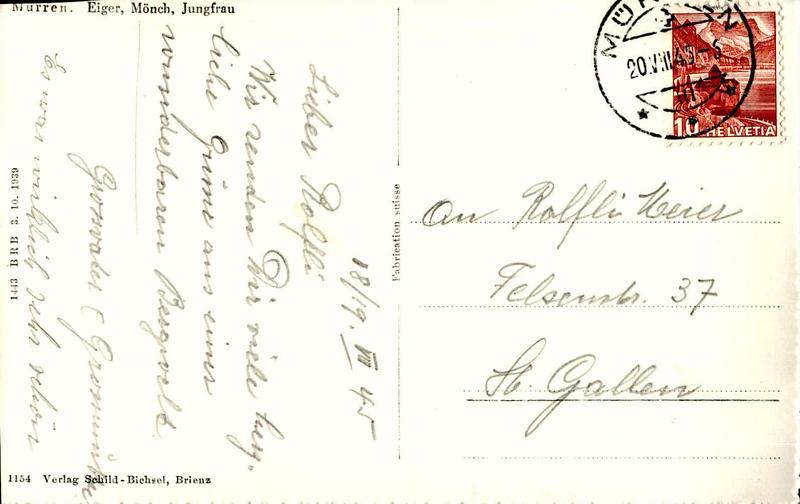 Mürren. Eiger, Mönch, Jungfrau
18/19. VIII 45
Lieber Rolfli
Wir senden Dir viele herz.
liche Grüsse aus einer
wunderbaren Bergwelt.
Grossvater & Grossmutter
Es war wirklich sehr schön
1443 BRB 3. 10. 1939
1154 Verlag Schild-Bichsel, Brienz
Fabrication suisse
MÜRREN
20.VIII.45-5
10 HELVETIA
An Rolfli Meier
Felsenstr. 37
St. Gallen